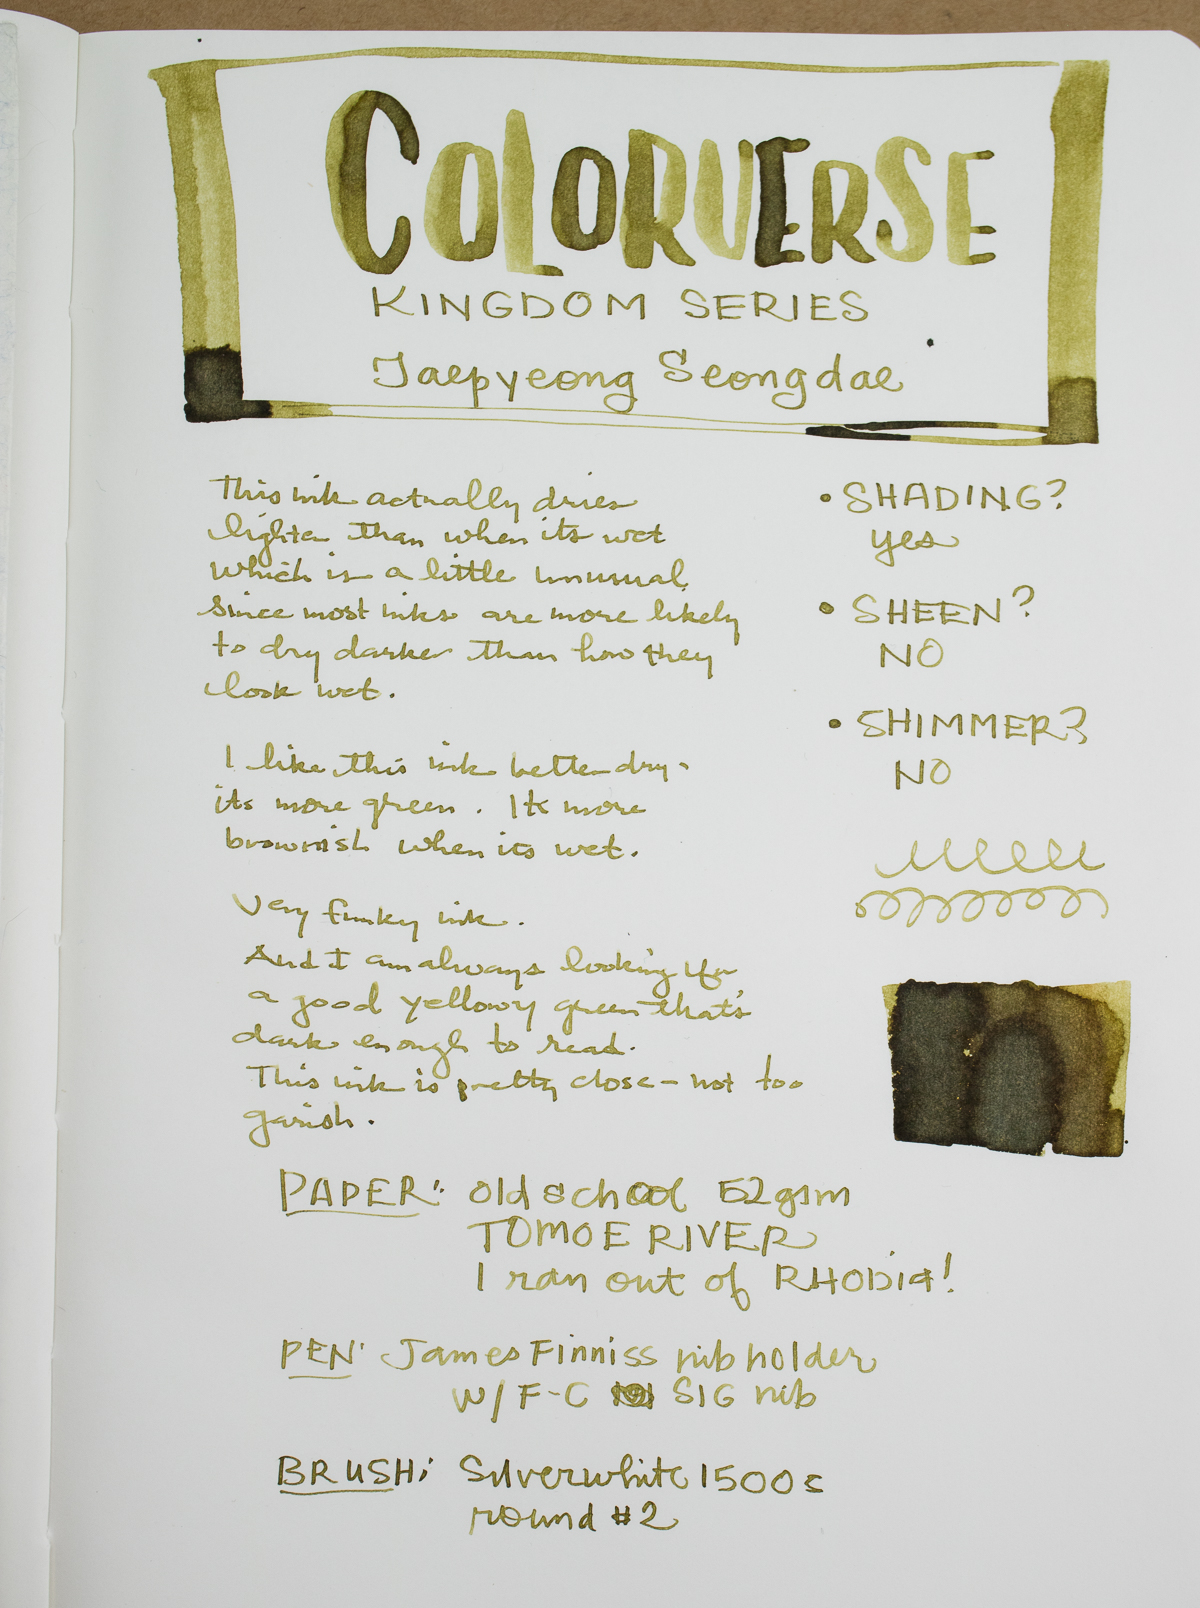 COLORVERSE
KINGDOM SERIES
Jaepyeong Seongdae
This ink actually dries
lighter than when its wet
which is a little unusual
since most inks are more likely
to dry darker than how they
look wet.
I like this ink better dry -
its more green. It more
brownish when its wet.
Very funky ink.
And I am always looking for
a good yellowy green that's
dark enough to read.
This ink is pretty close - not too
garish.
• SHADING?
yes
• SHEEN?
NO
• SHIMMER?
NO
PAPER: old school 52gsm
TOMOE RIVER
I ran out of RHODIA!
PEN: James Finniss nib holder
w/ F-C SIG nib
BRUSH: Silverwhite 1500s
round #2